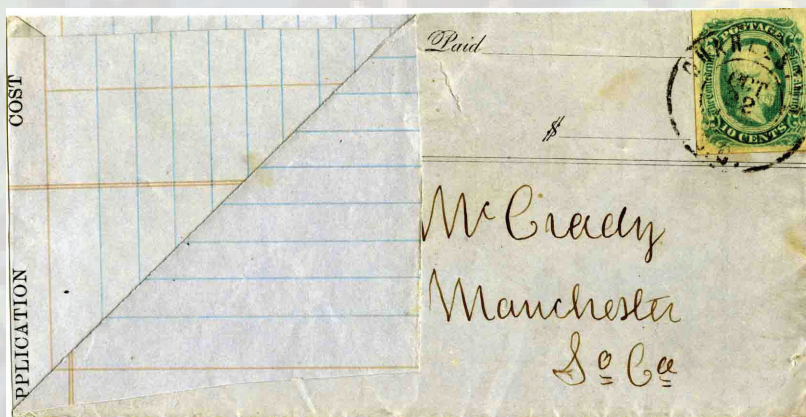 COST
PPLICATION
Paid
$
POSTAGE
10 CENTS
OCT
2
McCrady
Manchester
So Ca